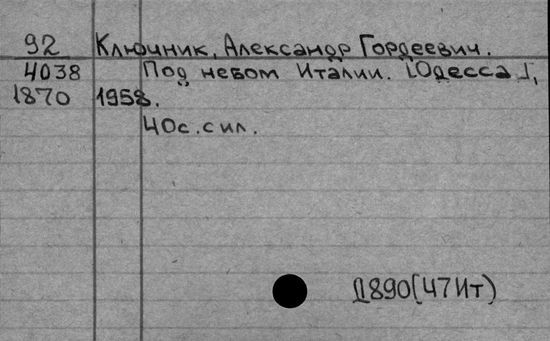 92 Ключник, Александр Гордеевич.
4038 Под небом Италии. [Одесса],
1870 1958.
40с. с ил.
Д890(47Ит)